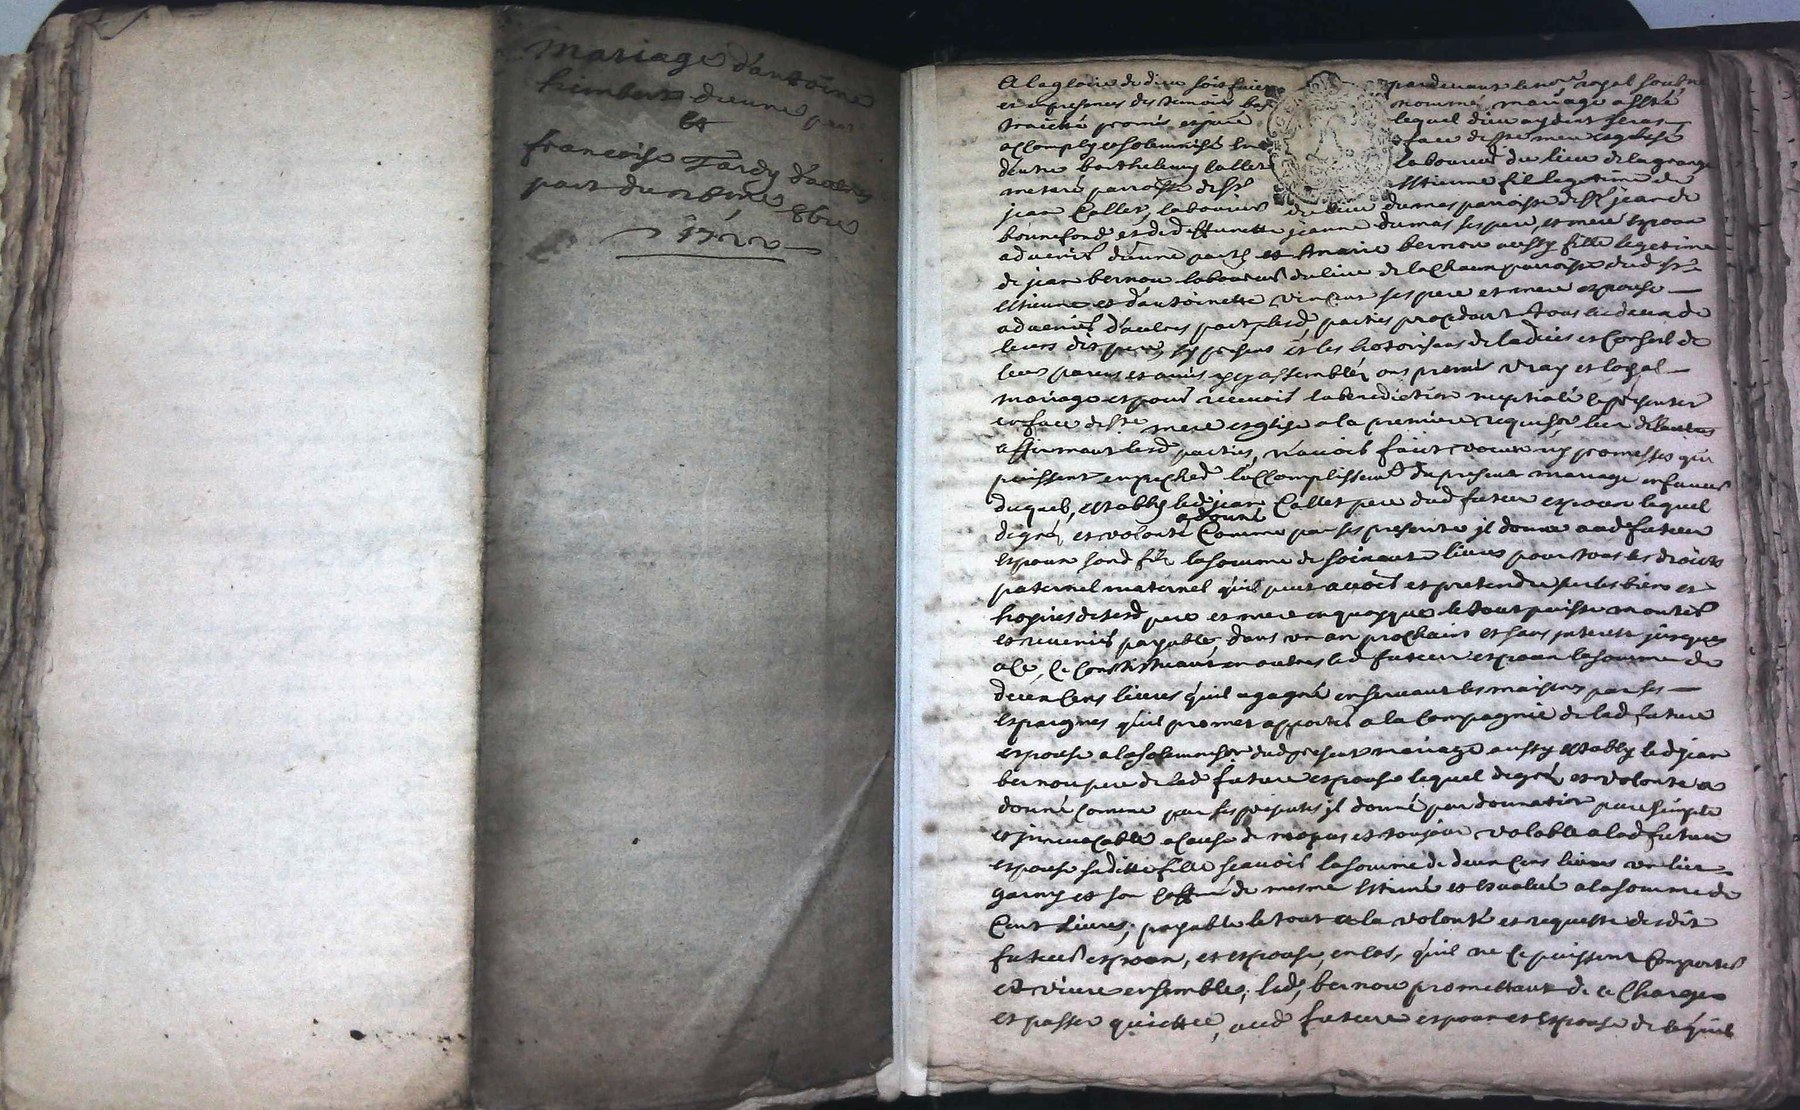 Mariage d'antoine
himbert d'une part
Et
francoise Tardy d'autres
part du neufme 8bre
1722
A la gloire de dieu soit faict pardevant le nore royal soubne
et en presence des temoins bas nommés mariage a esté
traicté promis et juré lequel dieu aydant seras
accomply et solemnisé en face de ste mere esglise
d'entre barthelemy Callet laboureur du lieu de la grange
parroisse de st Estienne fil legetime de
jean Callet laboureur du lieu dumas parroisse de st jean de
bonnefond et de deffunette jeanne dumas ses pere et mere espoux
advenir d'une part et Marie bernou aussy fille legetime
de jean bernou laboureur du lieu de la Chaux parroisse dud st
Estienne et d'antoinette vincent ses pere et mere espouse
advenir d'autres part lesd parties procedant tous les deux de
leurs dit pere sy presens et les hotorisans de ladvis et Conseil de
leurs parens et amis icy assemblés ont promis vray et loyal
mariage et pour recevoir la benediction nuptiale se presenter
en face de ste mere esglise a la premiere requision l'un de l'autre
affirmant lesd parties n'avoir faict voeux ny promesses qui
puissent empecher l'accomplissemt du present mariage en faveur
duquel, estably led jean Callet pere dud futeur espoux lequel
a donné
de gré et volonté Comme par ses presente jl donne aud futeur
espoux sond fils la somme de soixante livres pour tous les droits
paternel maternel qu'il peut avoir et pretendre sur les biens et
hoiries de sesd pere et mere en quoy que le tout puisse monter
et revenir payable dans un an prochain et sans jnterest jusques
a Ce, Ce Constituant en outres led futeur espoux la somme de
deux Cens livres qu'il a gagné en servant les maistres par ses
espargnes qu'il promet apporter a la Compagnie de lad future
espouse a la solemnison dud present mariage aussy estably led jean
bernou pere de lad future espouse lequel de gré et volonté a
donné Comme par ses presentes jl donne par donnation pure simple
et jrrevocable a cause de nopces et toujour valable a lad future
espouse sa ditte fille scavoir la somme de deux Cens livres un lict
garny et son Coffre de mesme Estimé et Evalué a la somme de
Cent Livres, payable le tout a la volonté et requeste desdit
futeur espoux, et espouse, en Cas, qu'il ne Ce puissent Comporter
et vivre ensemble, led, bernou promettant de ce Charger
et passer quictte, aud futeur espoux et Espouse de